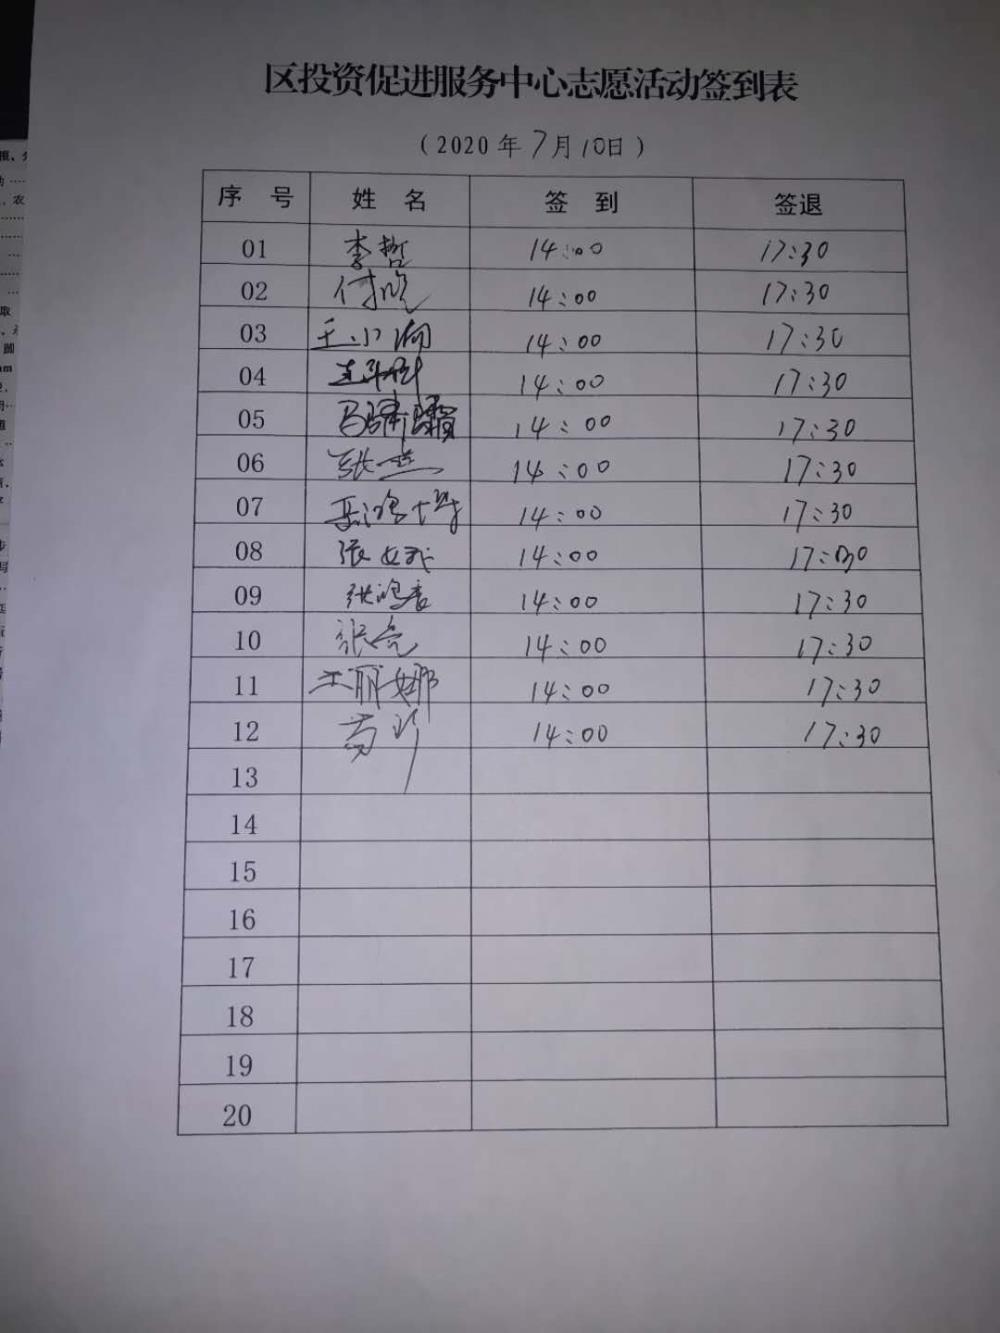 区投资促进服务中心志愿活动签到表
（2020年7月10日）
序 号 姓 名 签 到 签退
01 李哲 14:00 17:30
02 付 14:00 17:30
03 王小 14:00 17:30
04 14:00 17:30
05 马 14:00 17:30
06 张 14:00 17:30
07 14:00 17:30
08 张 14:00 17:30
09 张鸿 14:00 17:30
10 张亮 14:00 17:30
11 王丽娜 14:00 17:30
12 14:00 17:30
13
14
15
16
17
18
19
20